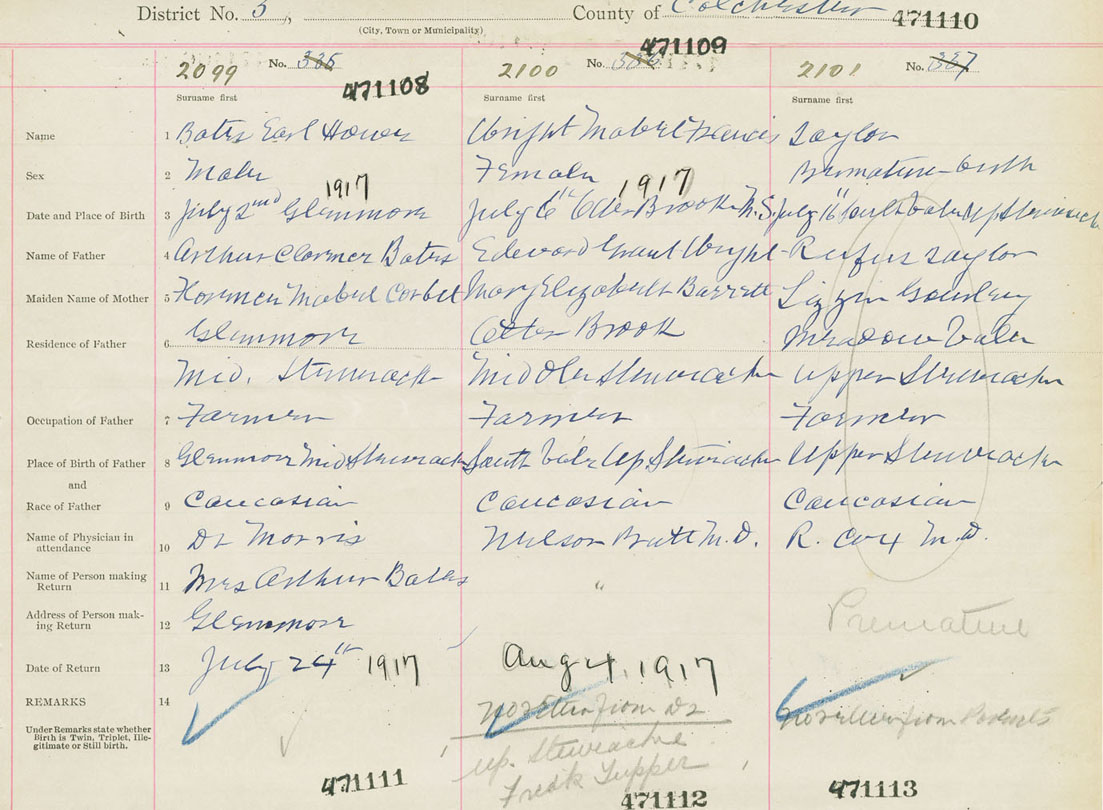 District No. 5, County of Colchester 471110
(City, Town or Municipality)
471109
2099 No. 335 471108 2100 No. 336 2101 No. 337
Surname first Surname first Surname first
Name 1 Bates Earl Wright Mabel Francis Taylor
Sex 2 Male Female Premature birth
1917 1917
Date and Place of Birth 3 July 2nd Glenmore July 6th Otter Brook N.S. July 16th South Vale Up. Stewiacke
Name of Father 4 Arthur Clarence Bates Edward Grant Wright Rufus Taylor
Maiden Name of Mother 5 Florence Mabel Corbet Mary Elizabeth Barrett Lizzie Gourley
Residence of Father 6 Glenmore Otter Brook Meadow Vale
Mid. Stewiacke Middle Stewiacke Upper Stewiacke
Occupation of Father 7 Farmer Farmer Farmer
Place of Birth of Father 8 Glenmore Mid Stewiacke South Vale Up. Stewiacke Upper Stewiacke
and
Race of Father 9 Caucasian Caucasian Caucasian
Name of Physician in attendance 10 Dr Morris M.D. R. Cox M.D.
Name of Person making Return 11 Mrs Arthur Bates "
Address of Person making Return 12 Glenmore Premature
Date of Return 13 July 24th 1917 Aug 4, 1917
REMARKS 14 No return from Dr No return from Parents
Under Remarks state whether Birth is Twin, Triplet, Illegitimate or Still birth.
Up. Stewiacke
Fredk Tupper
471111 471112 471113